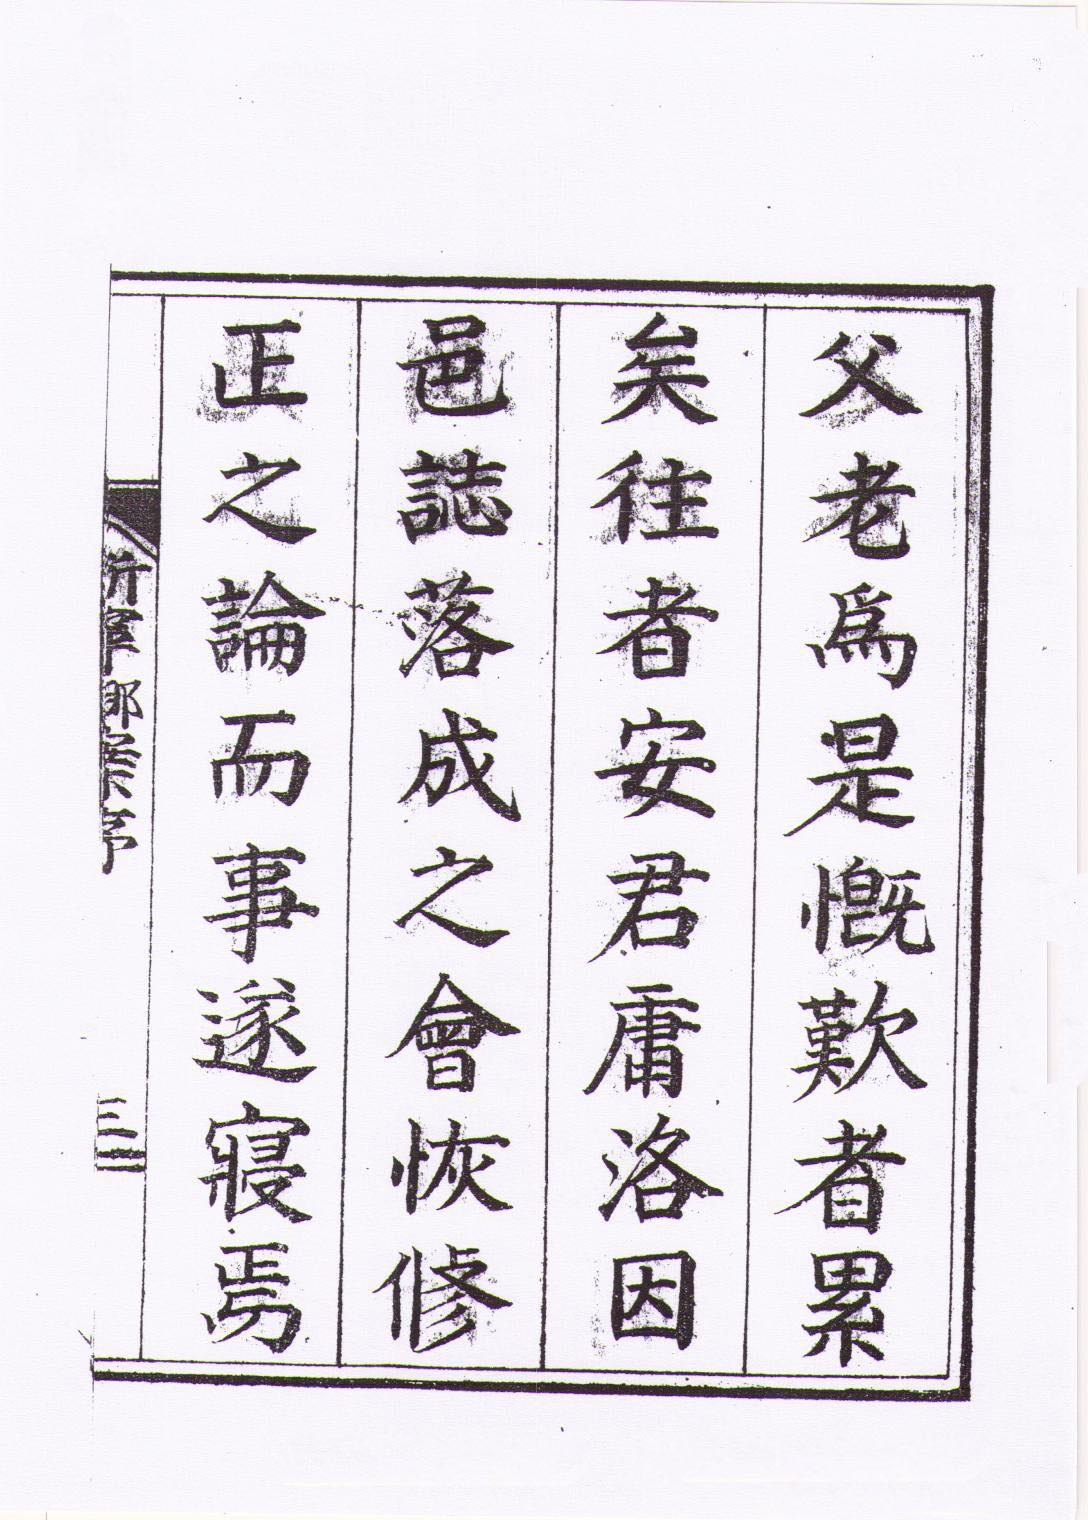 父老爲是慨歎者累
矣往者安君庸洛因
邑誌落成之會恢修
正之論而事遂寢焉
鄕案序
三